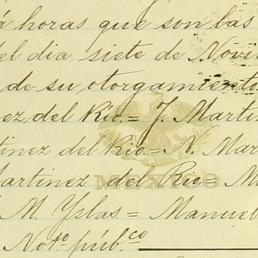 á horas que son las
del dia siete de Novi
de su otorgamiento
ez del Rio.= J. Martin
tinez del Rio= N. Mar
Martinez del Rio= M
M. Yslas = Manuel
Notº púbco